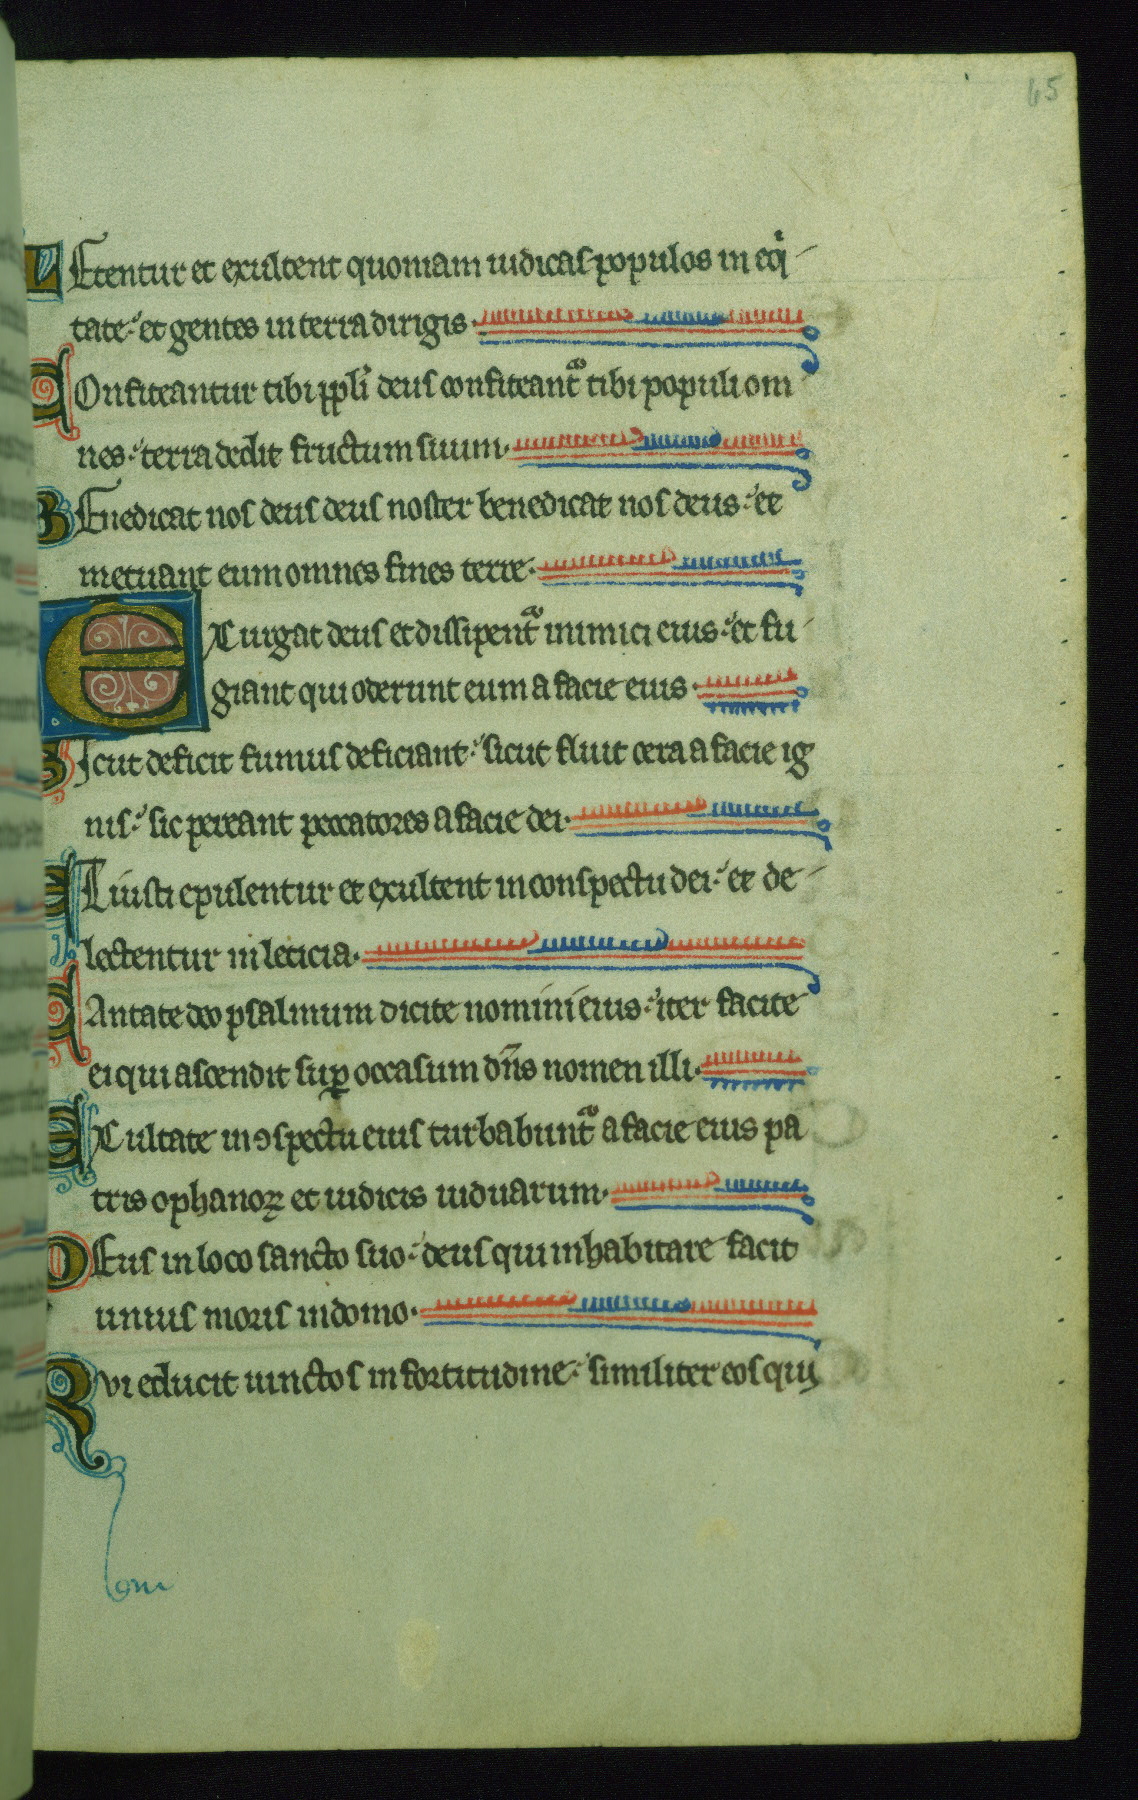 65
LEtentur et exultent quoniam iudicas populos in eqi
tate: et gentes in terra dirigis.
COnfiteantur tibi ppli deus confiteant tibi populi om
nes: terra dedit fructum suum.
BEnedicat nos deus deus noster benedicat nos deus: et
metuant eum omnes fines terre.
EXurgat deus et dissipent inimici eius: et fu
giant qui oderunt eum a facie eius.
SIcut deficit fumus deficiant: sicut fluit cera a facie ig
nis: sic pereant peccatores a facie dei.
ET iusti epulentur et exultent in conspectu dei: et de
lectentur in leticia.
CAntate deo psalmum dicite nomini eius: iter facite
ei qui ascendit sup occasum dns nomen illi.
EXultate in ꝯspectu eius turbabunt a facie eius pa
tris orphanoꝝ et iudicis uiduarum.
DEus in loco sancto suo: deus qui inhabitare facit
unius moris in domo.
QVi educit uinctos in fortitudine: similiter eos qui